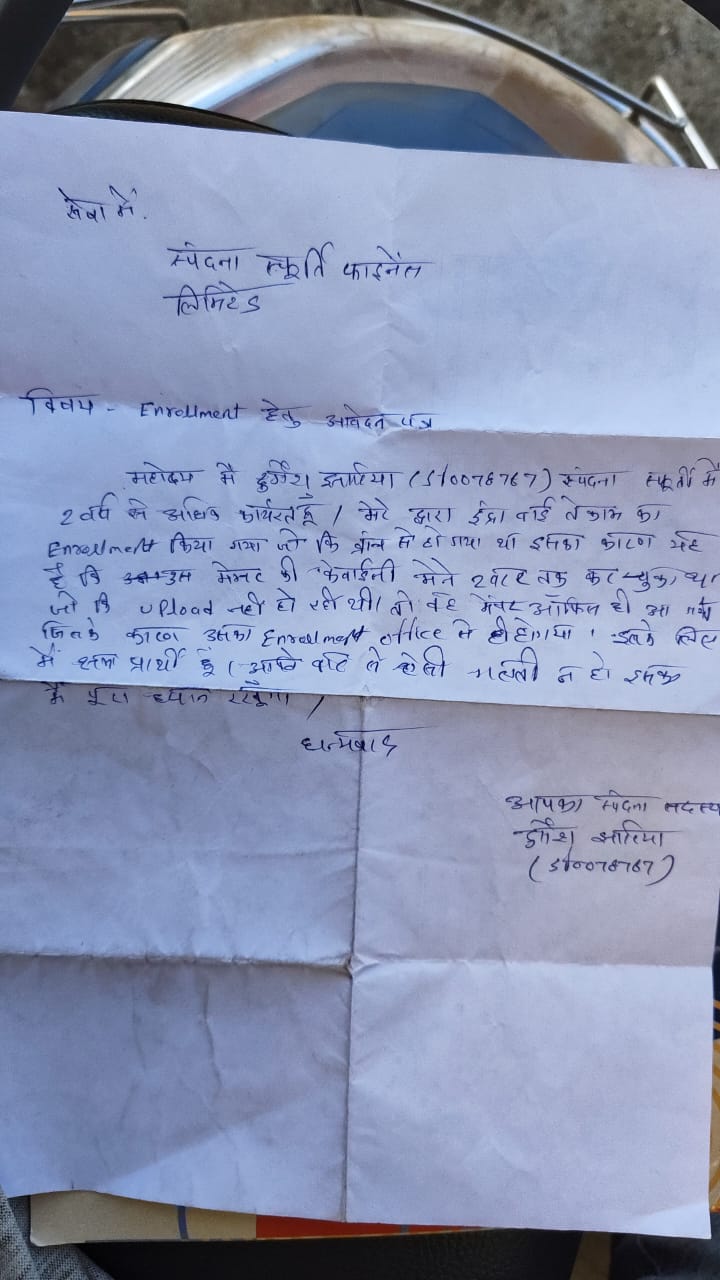 सेवा में.
स्पंदना स्फूर्ति फाइनेंस
लिमिटेड
विषय - Enrollment हेतु आवेदन पत्र
महोदय मैं दुर्गेश (S10078767) स्पंदना स्फूर्ती में
2 वर्ष से अधिक कार्यरत हूँ / मेरे द्वारा वार्ड का
Enrollment किया गया जो कि ब्रांच से हो गया था इसका कारण यह
है कि उस मेम्बर की केवाईसी मेने 2 तक कर चुका था
जो कि upload नही हो रही थी। तो वह मेंबर ऑफिस ही आ गया
जिसके कारण उसका Enrollment office से ही हो गया। इसके लिए
मैं क्षमा प्रार्थी हूं। गलती न हो इसका
में पूरा ध्यान रखूँगा /
धन्यवाद
आपका स्पंदना सदस्य
दुर्गेश
(S10078767)